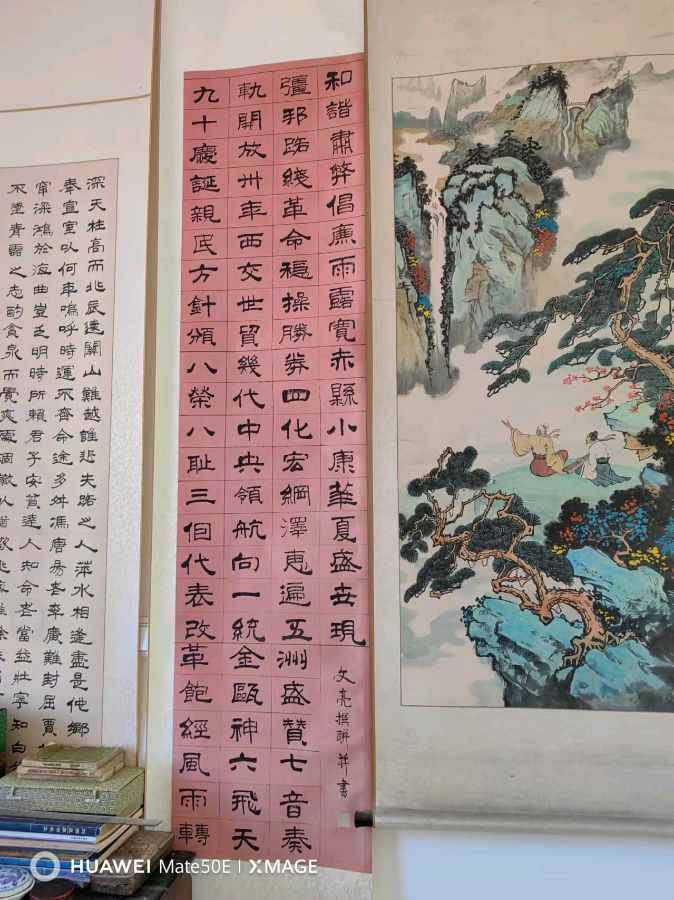 深天柱高而北辰遠關山難越誰悲失路之人萍水相逢盡是他鄉
奉宣室以何年嗚呼時運不齊命途多舛馮唐易老李廣難封屈賈
竄梁鴻於海曲豈乏明時所賴君子安貧達人知命老當益壯寧知白
不墜青雲之志酌貪泉而覺爽處涸轍以
九十慶誕親民方針頒八榮八耻三個代表改革飽經風雨轉
軌開放卅年西交世貿幾代中央領航向一統金甌神六飛天
彊邦路綫革命穩操勝券四化宏綱澤惠遍五洲盛贊七音奏
和諧肅弊倡廉雨露寬赤縣小康華夏盛世現
文亮撰聯并書
HUAWEI Mate50E | XMAGE